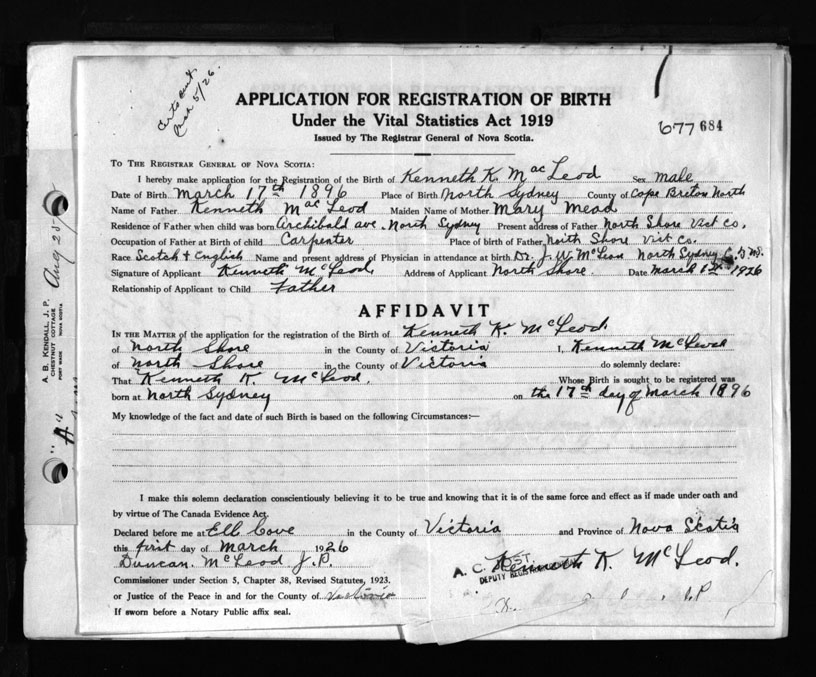 Mch 5/26.
APPLICATION FOR REGISTRATION OF BIRTH
Under the Vital Statistics Act 1919
Issued by The Registrar General of Nova Scotia.
677 684
TO THE REGISTRAR GENERAL OF NOVA SCOTIA:
I hereby make application for the Registration of the Birth of Kenneth K. MacLeod Sex male
Date of Birth March 17th 1896 Place of Birth North Sydney County of Cape Breton North
Name of Father Kenneth MacLeod Maiden Name of Mother Mary Mead
Residence of Father when child was born Archibald ave. North Sydney Present address of Father North Shore Vict Co.
Occupation of Father at Birth of child Carpenter Place of birth of Father North Shore Vict Co.
Race Scotch + English Name and present address of Physician in attendance at birth Dr. J. W. McLean North Sydney C.B.
Signature of Applicant Kenneth McLeod Address of Applicant North Shore. Date March 1st 1926
Relationship of Applicant to Child Father
AFFIDAVIT
IN THE MATTER of the application for the registration of the Birth of Kenneth K. McLeod
of North Shore in the County of Victoria I, Kenneth McLeod
of North Shore in the County of Victoria do solemnly declare:
That Kenneth K. McLeod. Whose Birth is sought to be registered was
born at North Sydney on the 17th day of March 1896
My knowledge of the fact and date of such Birth is based on the following Circumstances:—
I make this solemn declaration conscientiously believing it to be true and knowing that it is of the same force and effect as if made under oath and
by virtue of The Canada Evidence Act.
Declared before me at Ell Cove in the County of Victoria and Province of Nova Scotia
this first day of March 1926
Duncan McLeod J.P. Kenneth K. McLeod.
A. C. JOST.
DEPUTY REGISTRAR
Commissioner under Section 5, Chapter 38, Revised Statutes, 1923.
or Justice of the Peace in and for the County of Victoria
If sworn before a Notary Public affix seal.
A. B. KENDALL, J. P.
CHESTNUT COTTAGE
PORT WADE NOVA SCOTIA
Aug 25
"A"